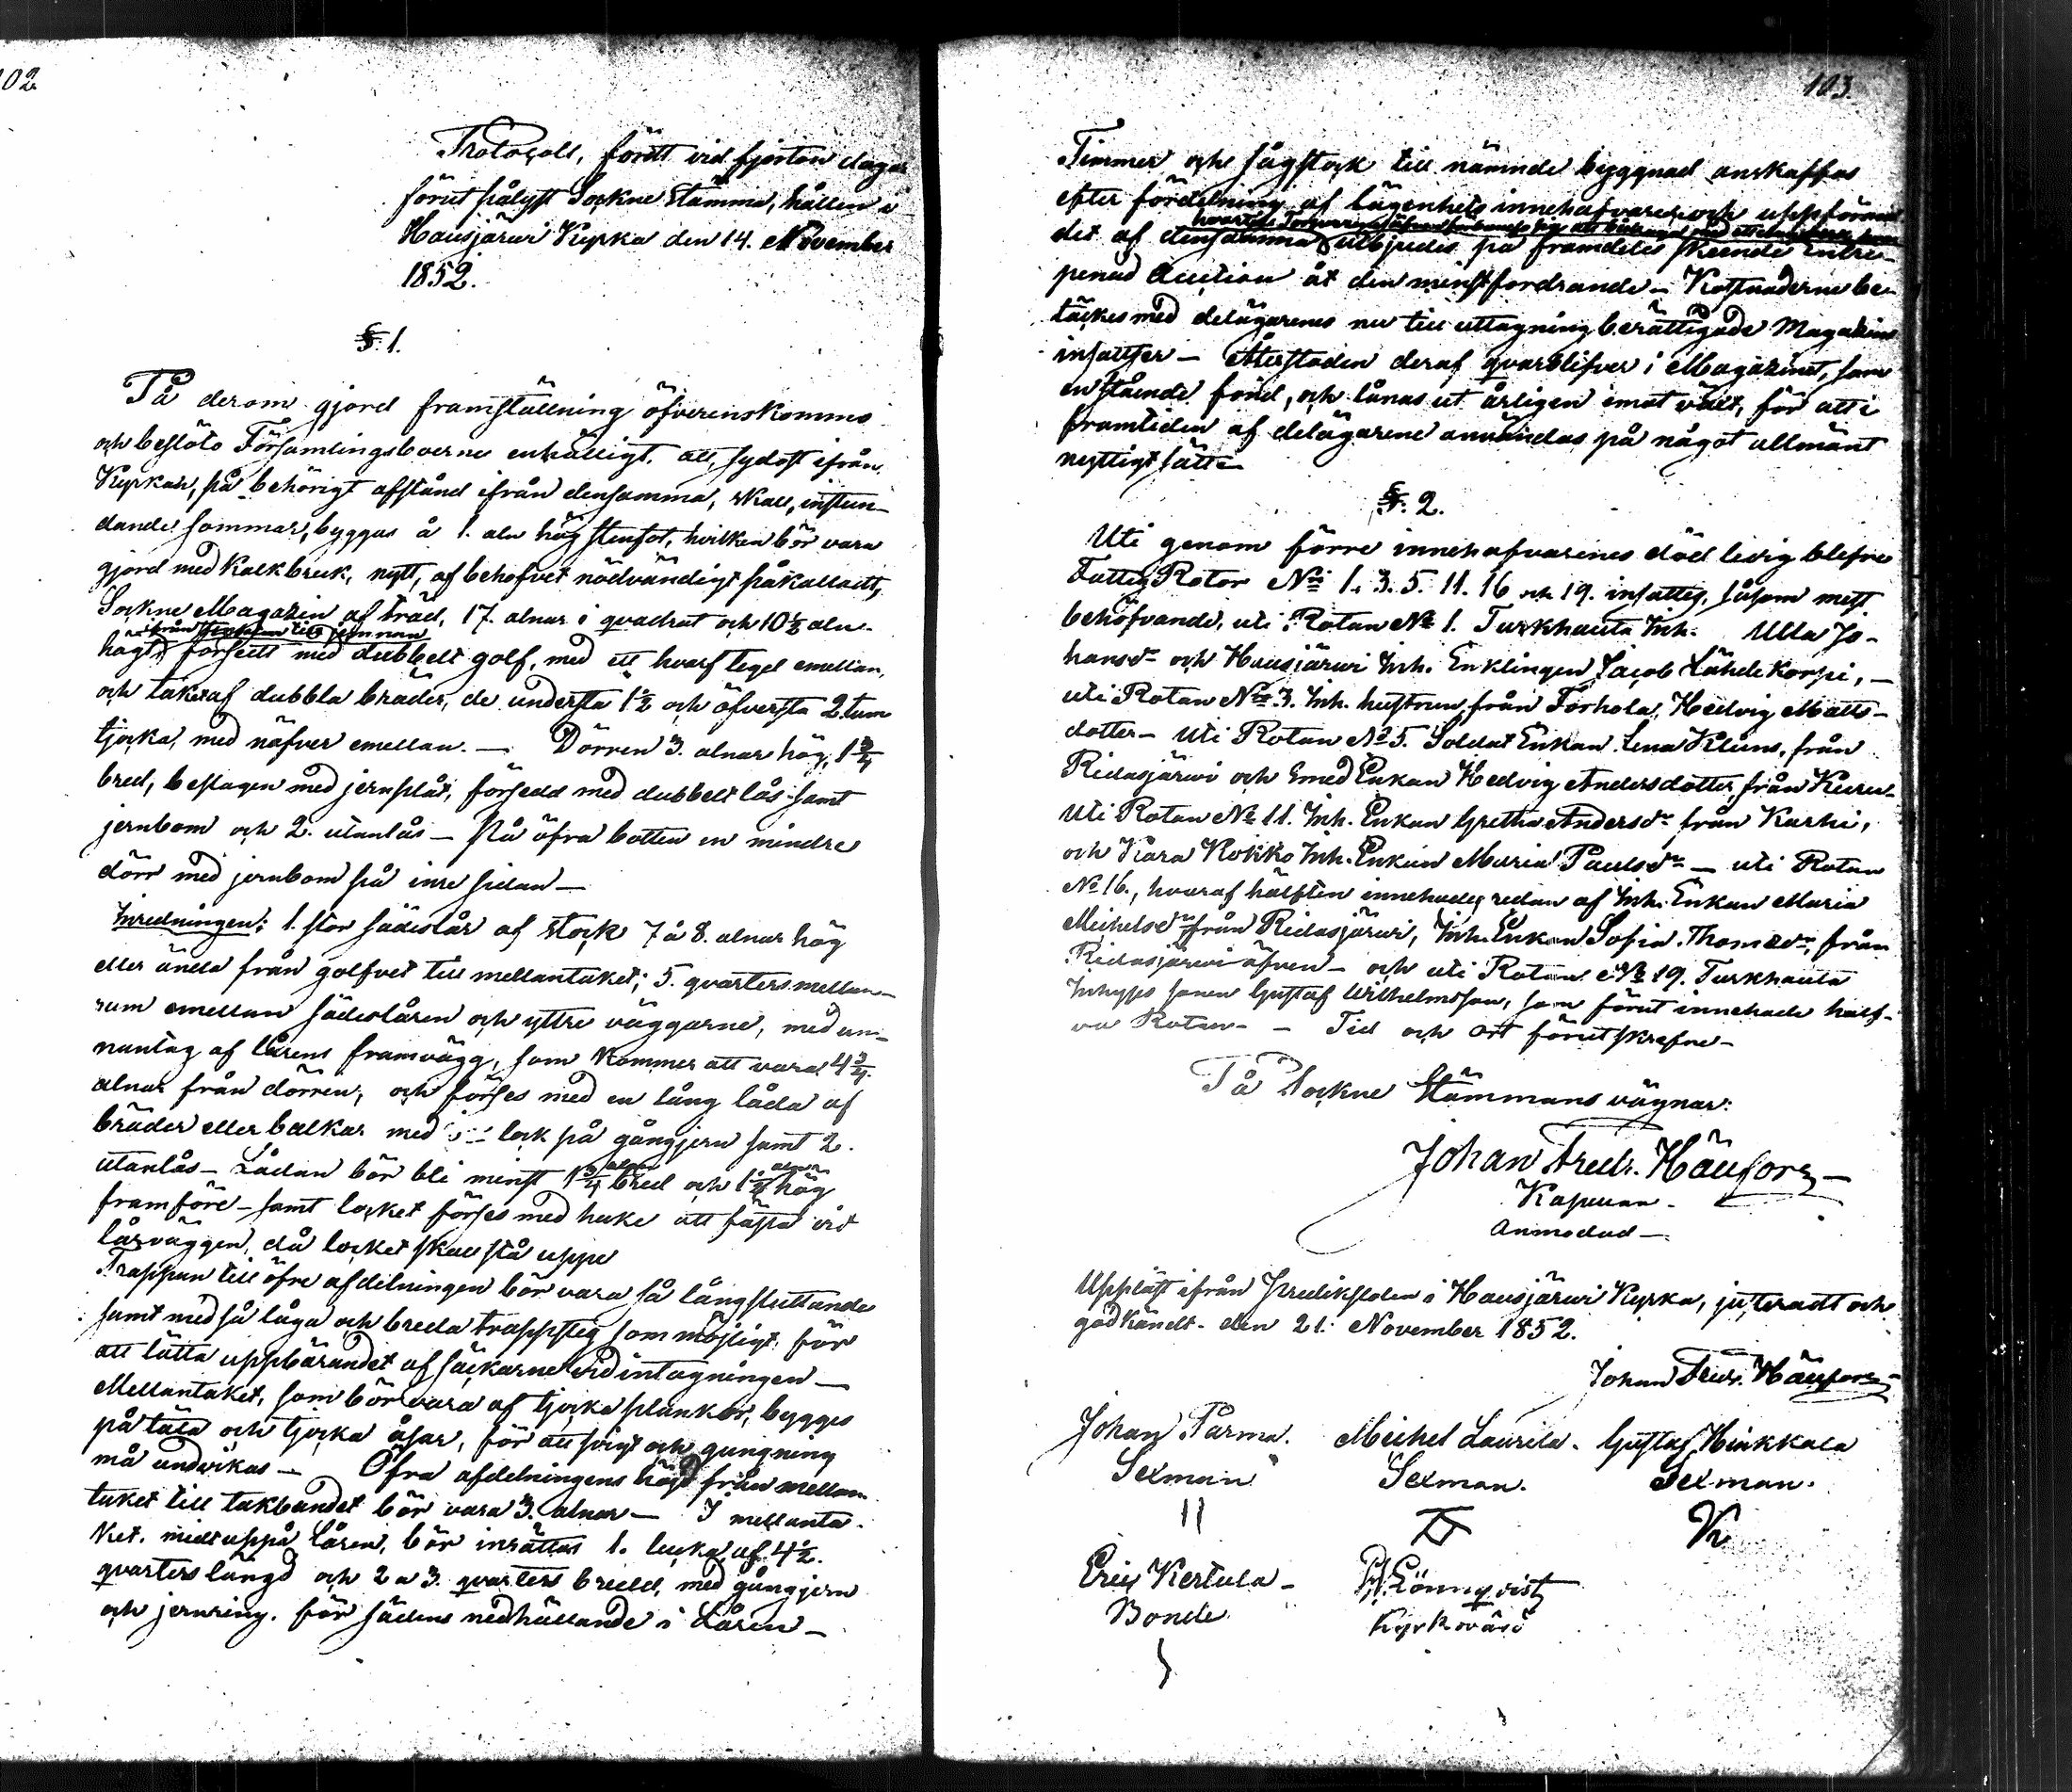 102
Protocoll, fördt vid fjorton dagar
förut pålyst Sockne Stämma, hållen i
Hausjärwi Kyrka den 14. November
1852.
§. 1.
På derom gjord framställning öfverenskommo
och beslöto Församlingsboerne enhälligt, att, sydost ifrån
Kyrkan, på behörigt afstånd ifrån densamma, skall, instun-
dande sommar, byggas å 1. aln hög stenfot, hvilken bör vara
gjord med kalkbruk, nytt, af behofvet nödvändigt påkalladt,
Sockne Magazin af träd, 17. alnar i quadrat och 10½ aln
ifrån stenfoten till
högt, försedt med dubbelt golf, med ett hvarf tegel emellan,
och tak af dubbla bräder, de understa 1½ och öfversta 2. tum
tjocka, med näfver emellan. — Dörren 3. alnar hög, 1¾
bred, beslagen med jernplåt, försedd med dubbelt lås samt
jernbom och 2. utanlås — På öfra botten en mindre
dörr med jernbom på inre sidan —
Inredningen: 1. stor sädeslår af stock 7 à 8. alnar hög
eller ända från golfvet till mellantaket; 5. qvarters mellan-
rum emellan sädeslåren och yttre väggarne, med un-
nantag af lårens framvägg, som kommer att vara 4¾.
alnar från dörren, och förses med en lång låda af
bräder eller balkar med lock på gångjern samt 2.
utanlås — Lådan bör bli minst 1¾ alnar bred och 1½ alnar hög
framföre — samt locket förses med hake att fästa vid
lårväggen, då locket skall stå uppe
Trappan till öfre afdelningen bör vara så långsluttande
samt med så låga och breda trappsteg som möjligt, för
att lätta uppbärandet af säckarne vid intagningen —
Mellantaket, som bör vara af tjocka plankor, bygges
på täta och tjocka åsar, för att svigt och gungning
må undvikas — Öfra afdelningens höjd från mellan-
taket till takbandet bör vara 3. alnar — I mellanta-
ket, midt uppå Låren, bör inrättas 1. lucka, af 4½.
qvarters längd och 2 a 3. qvarters bredd, med gångjern
och jernring, för sädens nedhällande i Låren —
103.
Timmer och sågstock till nämnde byggnad anskaffas
efter fördelning af lägenhets innehafvare och uppföran-
det af densamma utbjudes på framdeles skeende Entre-
penad Auction åt den minstfordrande — Kostnaderne be-
täckes med delägarenes nu till uttagning berättigade Magazins
insattser — Återstoden deraf qvarblifver i Magazinet, som
en stående fond, och lånas ut årligen imot växt, för att i
framtiden af delägarene användas på något allmänt
nyttigt sätt —
§. 2.
Uti genom förre innehafvarenes död ledig blefne
Fattig Rotor No 1. 3. 5. 11. 16 och 19. insattes, såsom mest
behöfvande, uti Rotan No 1. Turkhauta Inh. Ulla Jo-
hansdr och Hausjärwi Inh. Enklingen Jacob Lähdekorpi, —
uti Rotan No 3. Inh. hustrun från Torhola, Hedvig Matts-
dotter — Uti Rotan No 5. Soldat Enkan Lena Klüns, från
Ridasjärwi och Smed Enkan Hedvig Andersdotter, från Kuru —
Uti Rotan No 11. Inh. Enkan Gretha Andersdr från Karhi,
och Kara Kokko Inh. Enkan Maria Paulsdr — uti Rotan
No 16., hvaraf hälften innehades redan af Inh. Enkan Maria
Michelsdr från Ridasjärwi, Inh. Enkan Sofia Thomædr, från
Ridasjärwi äfven — och uti Rotan No 19. Turkhauta
Inhyses sonen Gustaf Wilhelmsson, som förut innehade half-
va Rotan — Tid och ort förutskrefne —
På Sockne Stämmans vägnar:
Johan Fredr. Häufors —
Kapellan
Anmodad —
Uppläst ifrån Predikstolen i Hausjärwi Kyrka, justeradt och
godkändt den 21. November 1852.
Johan Fredr. Häufors —
Johan Parma. Michel Laurila. Gustaf Hinkkala
Sexman Sexman. Sexman.
Eric Kertula — Lönnqvist
Bonde Kyrkovärd